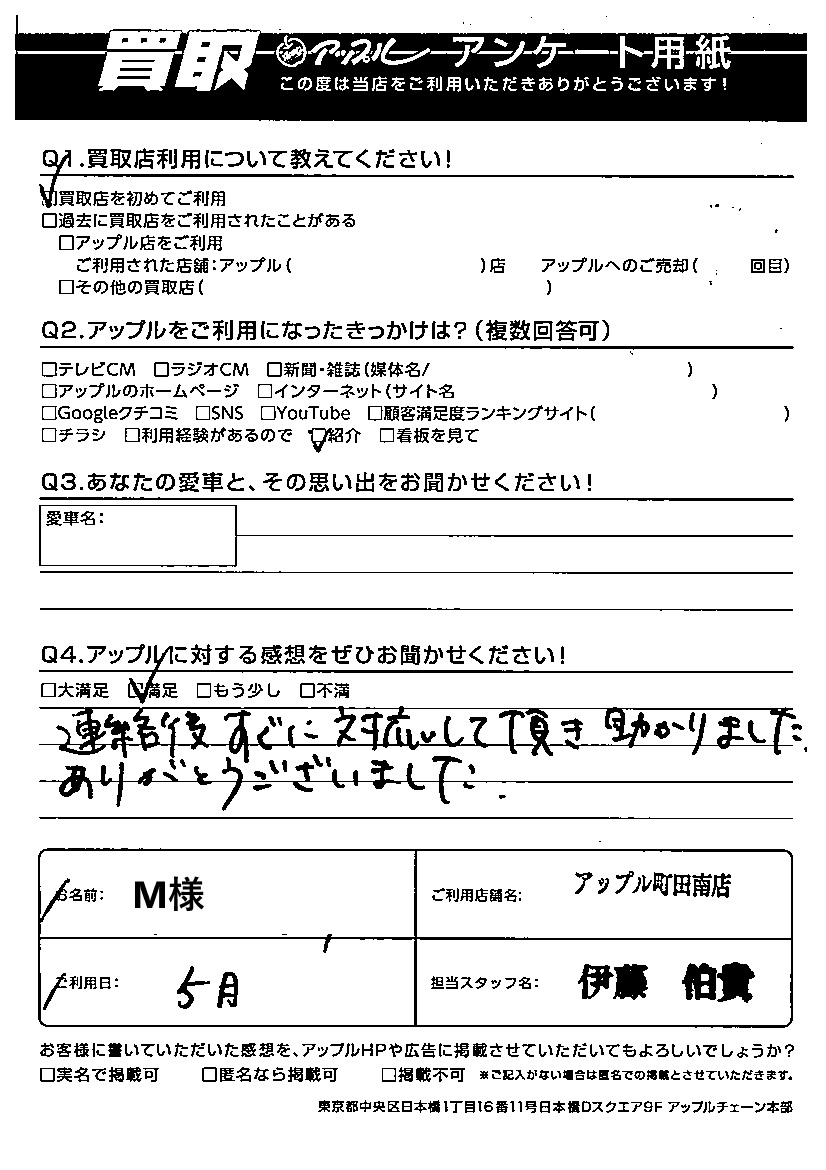 買取 アップル アンケート用紙
この度は当店をご利用いただきありがとうございます!
Q1.買取店利用について教えてください!
☑買取店を初めてご利用
□過去に買取店をご利用されたことがある
□アップル店をご利用
ご利用された店舗:アップル( )店 アップルへのご売却( 回目)
□その他の買取店( )
Q2.アップルをご利用になったきっかけは?(複数回答可)
□テレビCM □ラジオCM □新聞・雑誌(媒体名/ )
□アップルのホームページ □インターネット(サイト名 )
□Googleクチコミ □SNS □YouTube □顧客満足度ランキングサイト( )
□チラシ □利用経験があるので ☑紹介 □看板を見て
Q3.あなたの愛車と、その思い出をお聞かせください!
愛車名:
Q4.アップルに対する感想をぜひお聞かせください!
□大満足 ☑満足 □もう少し □不満
連絡後すぐに対応して頂き助かりました
ありがとうございました
お名前: M様 ご利用店舗名: アップル町田南店
ご利用日: 5月 担当スタッフ名: 伊藤 伯貴
お客様に書いていただいた感想を、アップルHPや広告に掲載させていただいてもよろしいでしょうか?
□実名で掲載可 □匿名なら掲載可 □掲載不可 ※ご記入がない場合は匿名での掲載とさせていただきます。
東京都中央区日本橋1丁目16番11号日本橋Dスクエア9F アップルチェーン本部